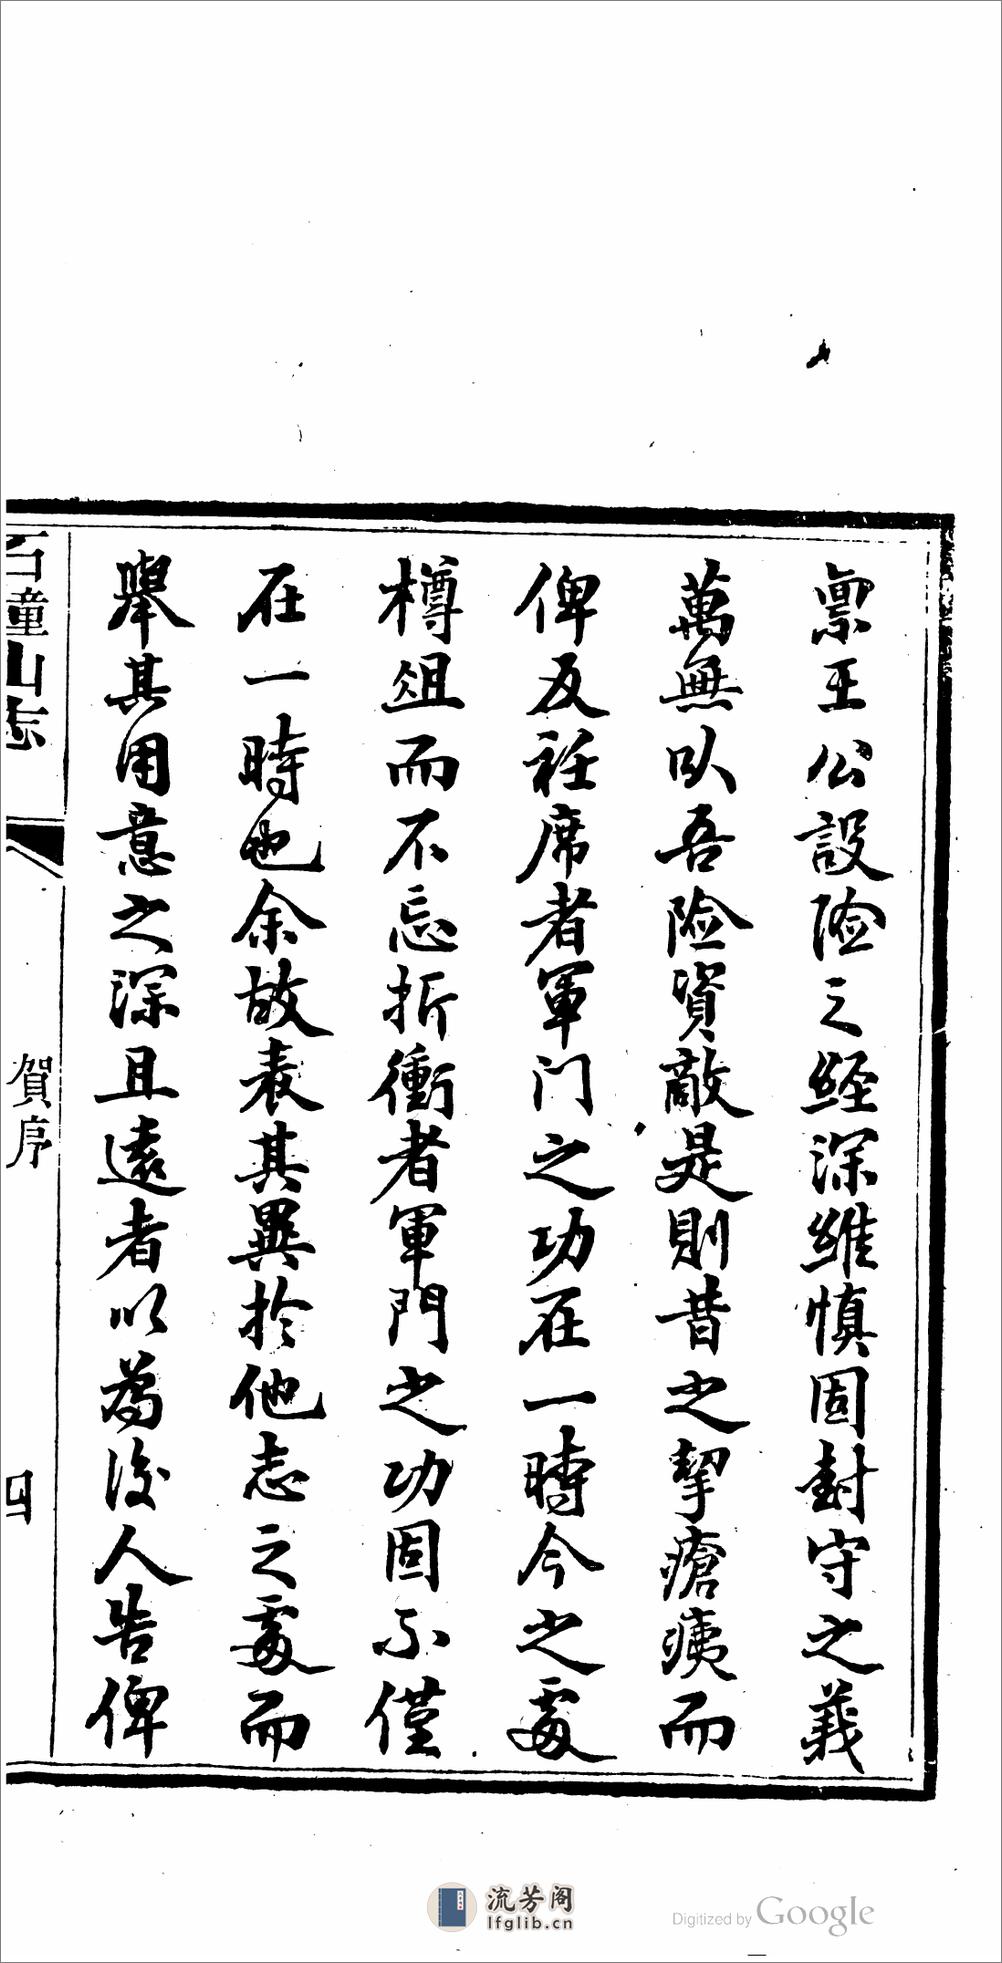 稟王公設險之經深維慎固封守之義
萬無以吾險資敵是則昔之挈瘡痍而
俾反衽席者軍门之功在一時今之處
樽俎而不忘折衝者軍門之功固不僅
在一時也余故表其異於他志之處而
舉其用意之深且遠者以為後人告俾
石鐘山志
賀序
四
流芳阁
lfglib.cn
Digitized by Google